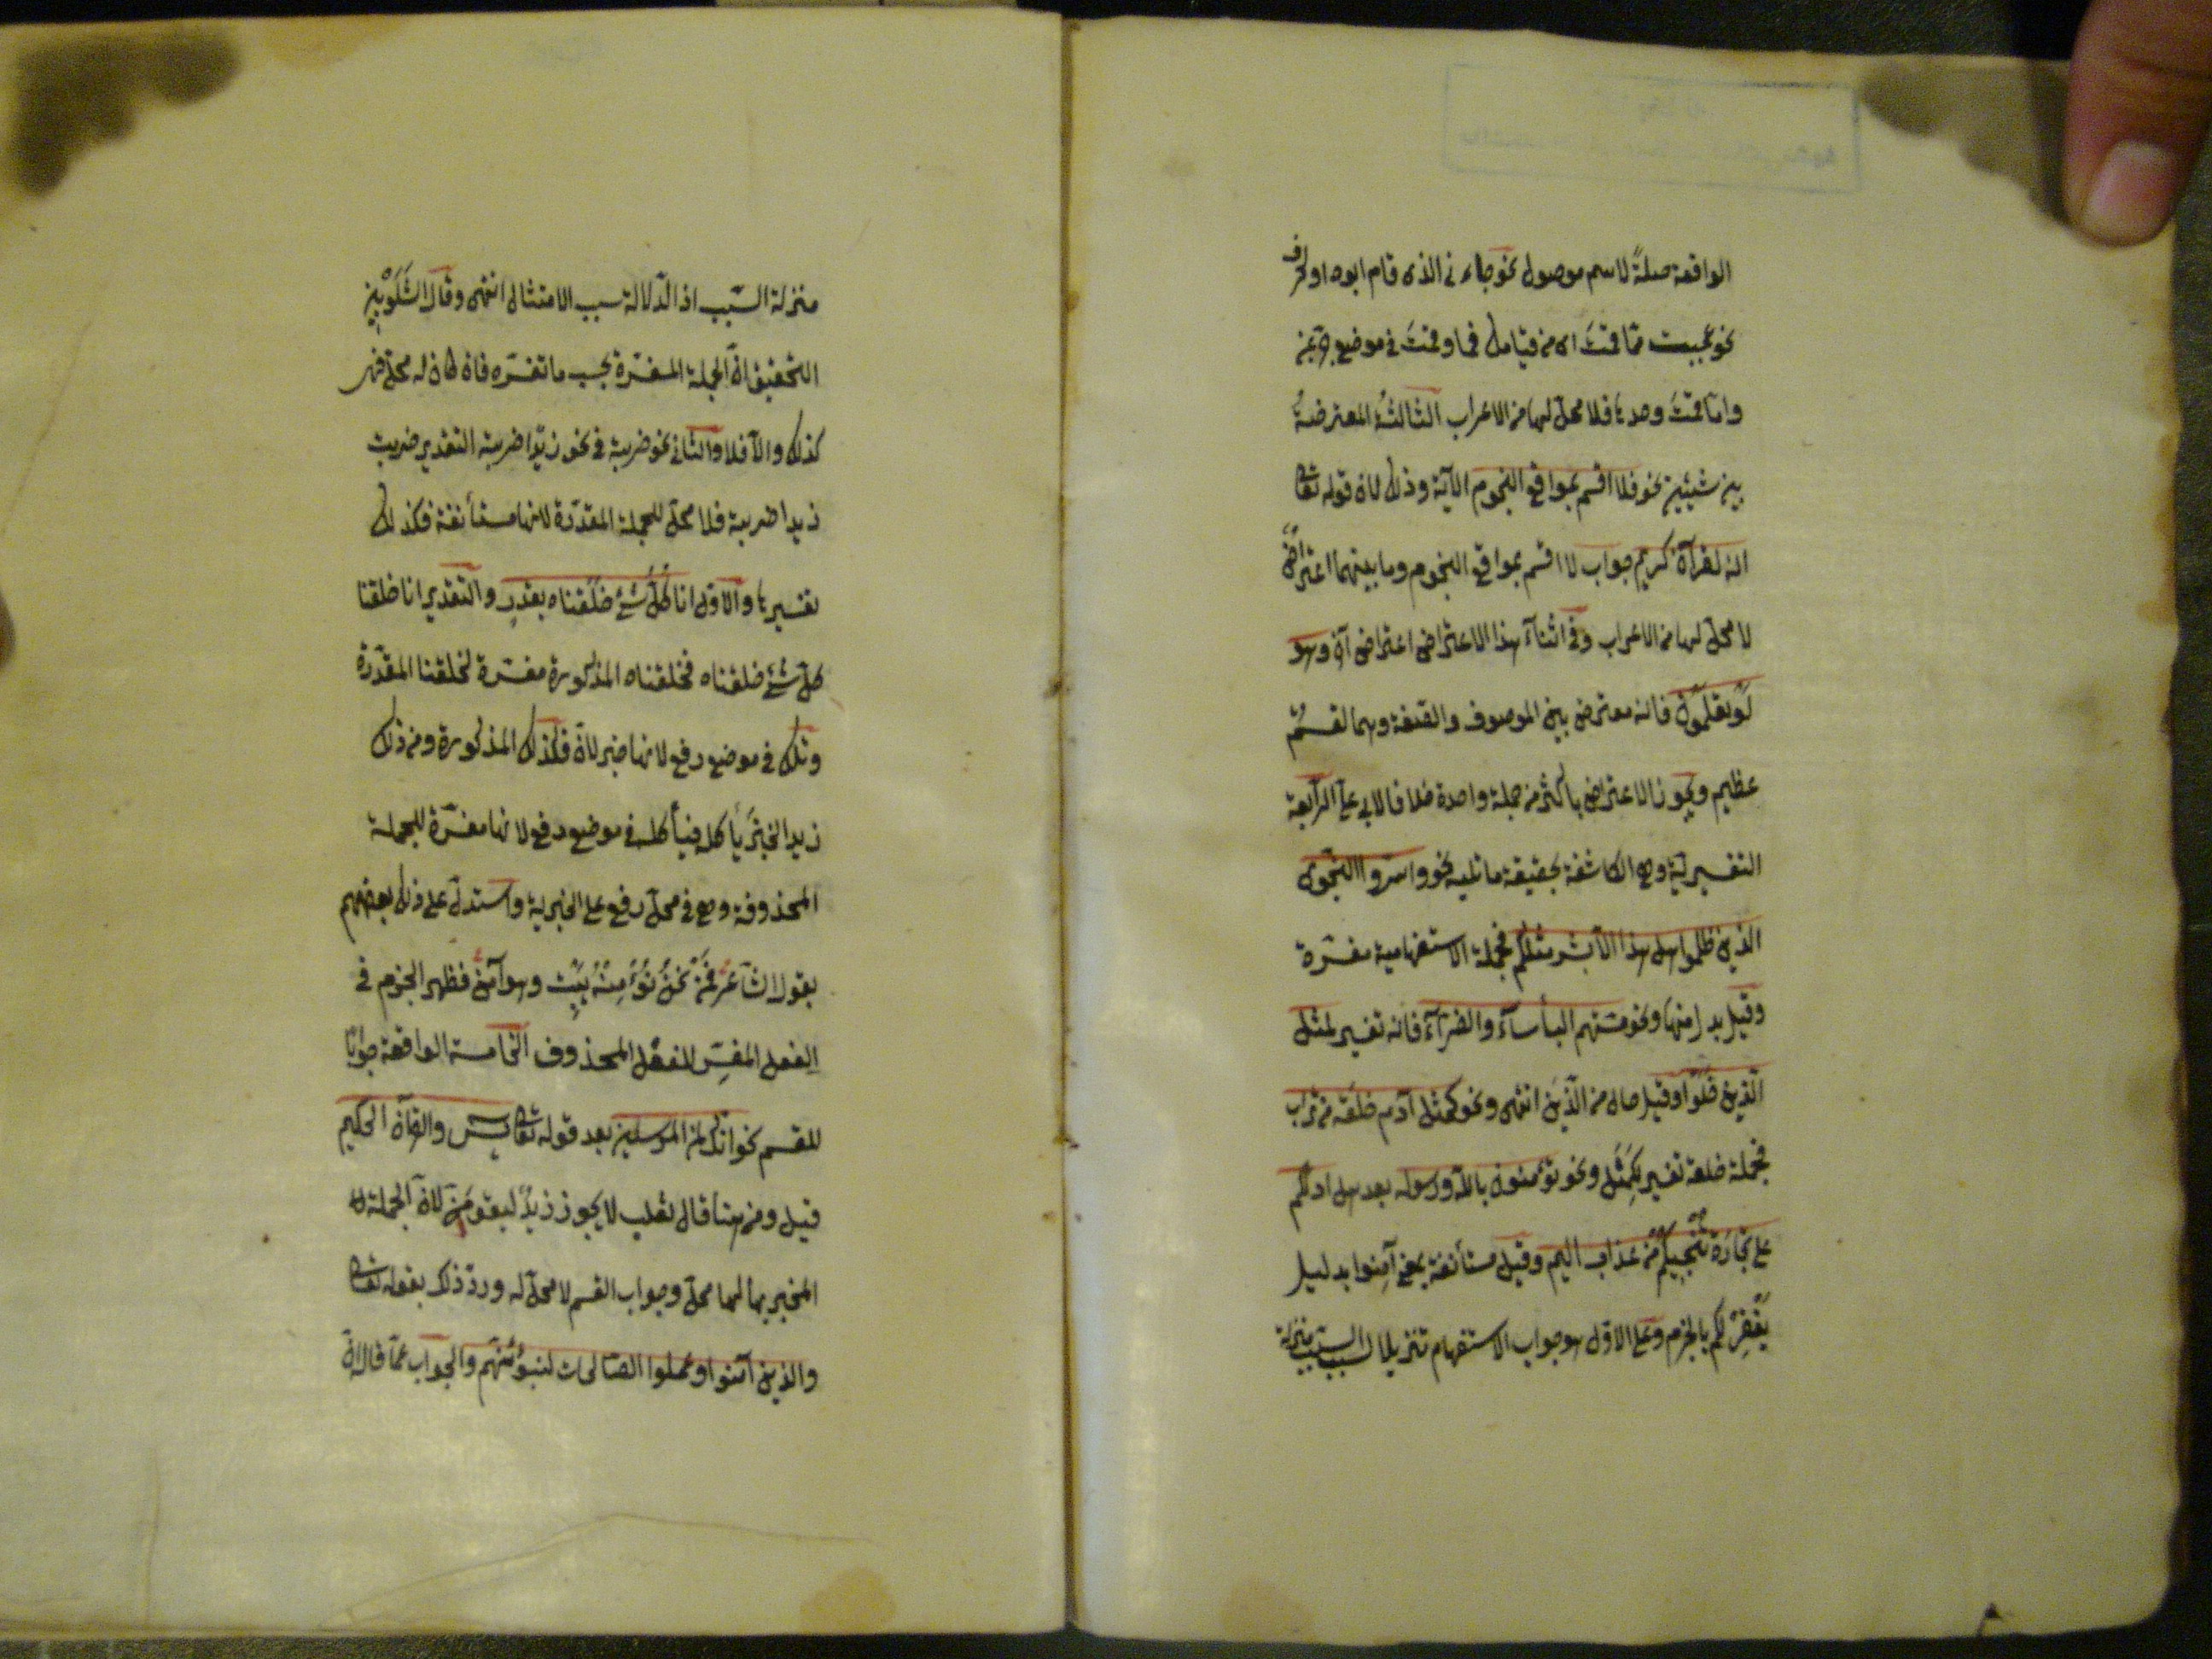 الواقعة صلةً لاسم موصول نحو جاءني الذي قام ابوه او لحرف
نحو عجبت مما قمتَ اى من قيامك فما وقمتَ في موضع جر بمن
وامّا قمتَ وحدها فلا محلّ لها من الاعراب الثالثةُ المعترضةُ
بين شيئين نحو فلا اقسم بمواقع النجوم الآية وذلك لان قوله تعالى
انه لقرآن كريم جواب لا اقسم بمواقع النجوم وما بينهما اعتراضٌ
لا محلّ لها من الاعراب وفي اثناء هذا الاعتراض اعتراض آخر وهو
لَوْ تعلَمُونَ فانه معترض بين الموصوف والصّفة وهما لقسمٌ
عظيم ويجوز الاعتراض باكثر من جملة واحدة خلافا لابي عليّ الرّابعة
التفسيريّة وهي الكاشفة لحقيقة ما تليه نحو واسرّوا النّجوى
الذين ظلموا هل هذا الّا بشر مثلكم فجملة الاستفهامية مفسّرة
وقيل بدل منها ونحو مسّتهم البأساءُ والضّراءُ فانه تفسير لمثل
الّذين خَلَوْا وقيل حال من الّذينَ انتهى ونحو كمثل آدم خلقه من تراب
فجملة خلقه تفسير لِكَمَثَل ونحو تؤمنون بالله ورسوله بعد هل ادلّكم
على تجارَة تُنْجِيكُمْ من عذاب اليم وقيل مستأنفة بمعنى آمِنوا بدليل
يَغْفِرْ لكم بالجزم وعلى الاوّل هو جواب الاستفهام تنزيلا لسبب السّبب منزلة
منزلة السّبب اذ الدّلالة سبب الامتثال انتهى وقال الشَّلَوْبِين
التحقيق انّ الجملة المفسّرة بحسب ما تفسّره فان كان له محلّ فهى
كذلك والّا فلا والثّاني نحو ضربته في نحو زيدًا ضربته التقدير ضربت
زيدا ضربته فلا محلّ للجملة المقدّرة لانها مستأنفة فكذلك
تفسيرها والاوّل انا كُلَّ شَيْءٍ خَلَقْناه بقدَرٍ والتقدير انا خلقنا
كلّ شيءٍ خلقناه فخلقناه المذكورة مفسّرة لخلقنا المقدّرة
وتلك في موضع رفع لانها خبر لانّ فكذلك المذكورة ومن ذلك
زيد الخبزَ يأكله فيأكله في موضع رفع لانها مفسّرة للجملة
المحذوفة وهي في محلّ رفع على الخبرية واستدلّ على ذلك بعضهم
بقول الشّاعر فَمَنْ نَحْنُ نُؤْمِنْهُ يَبِتْ وهو آمنٌ فظهر الجزم في
الفعل المفسِّر للفعل المحذوف الخامسة الواقعة جوابًا
للقسم نحو انك لمن المرسلين بعد قوله تعالى يس والقرآن الحكيم
قيل ومن هنا قال ثعلب لا يجوز زيدٌ ليقومَنّ لانّ الجملة
المخبر بها لها محلّ وجواب القسم لا محلّ له وردّ ذلك بقوله تعالى
والذين آمنوا وعملوا الصّالحات لنبوّئنّهم والجواب عمّا قاله انّ